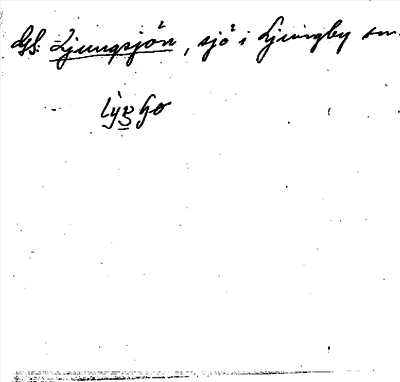 GS: Ljungsjön, sjö i Ljungby sn.